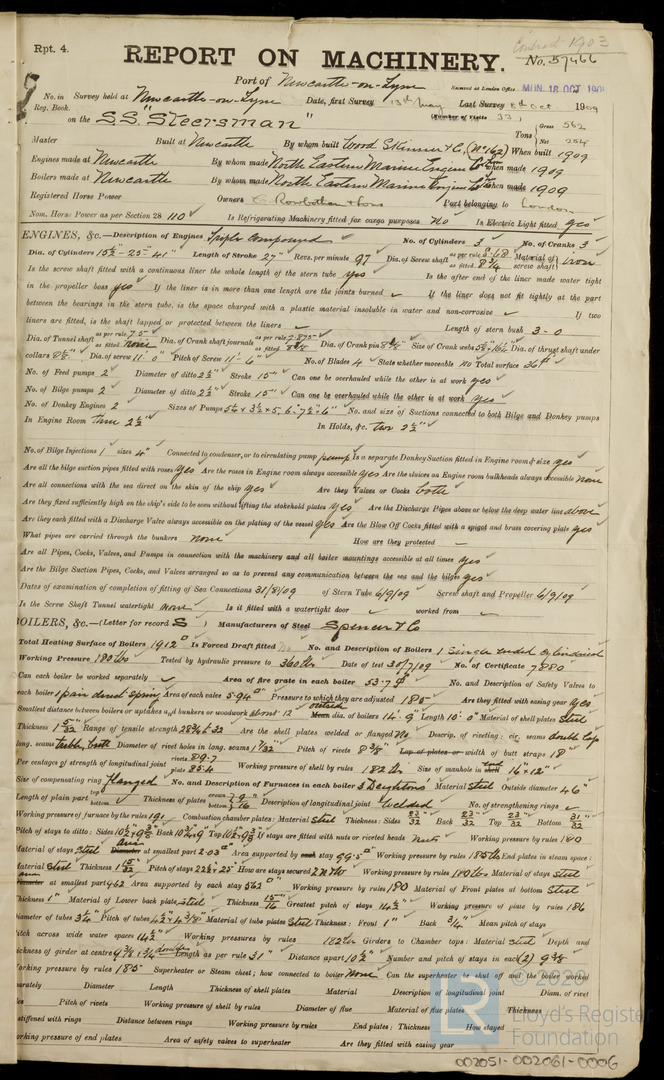 Rpt. 4.
REPORT ON MACHINERY.
Contract 1903
No. 57466
Port of Newcastle-on-Tyne
Received at London Office MON. 18 OCT 190
No. in Survey held at Newcastle-on-Tyne Date, first Survey 13th May Last Survey 8th Oct 1909
Reg. Book. (Number of Visits 33)
on the S.S. "Steersman"
Tons { Gross 562
Net 254
Master Built at Newcastle By whom built Wood Skinner & Co, (No 162) When built 1909
Engines made at Newcastle By whom made North Eastern Marine Engine Co Ltd when made 1909
Boilers made at Newcastle By whom made North Eastern Marine Engine Co Ltd when made 1909
Registered Horse Power Owners Rowbotham & Sons Port belonging to London
Nom. Horse Power as per Section 28 110 Is Refrigerating Machinery fitted for cargo purposes No Is Electric Light fitted yes
ENGINES, &c.—Description of Engines Triple Compound No. of Cylinders 3 No. of Cranks 3
Dia. of Cylinders 15½-25-41" Length of Stroke 27" Revs. per minute 97 Dia. of Screw shaft as per rule 8.68 as fitted 8¾ Material of screw shaft Iron
Is the screw shaft fitted with a continuous liner the whole length of the stern tube yes Is the after end of the liner made water tight
in the propeller boss yes If the liner is in more than one length are the joints burned ✓ If the liner does not fit tightly at the part
between the bearings in the stern tube, is the space charged with a plastic material insoluble in water and non-corrosive ✓ If two
liners are fitted, is the shaft lapped or protected between the liners ✓ Length of stern bush 3-0
Dia. of Tunnel shaft as per rule 7.5 as fitted none Dia. of Crank shaft journals as per rule 7.875 as fitted 8¼ Dia. of Crank pin 8¼" Size of Crank webs Dia. of thrust shaft under
collars 8¼" Dia. of screw 11'.0" Pitch of Screw 11'.6" No. of Blades 4 State whether moveable No Total surface 36 ft
No. of Feed pumps 2 Diameter of ditto 2½" Stroke 15" Can one be overhauled while the other is at work yes
No. of Bilge pumps 2 Diameter of ditto 2½" Stroke 15" Can one be overhauled while the other is at work yes
No. of Donkey Engines 2 Sizes of Pumps No. and size of Suctions connected to both Bilge and Donkey pumps
In Engine Room three 2½" In Holds, &c. two 2½"
No. of Bilge Injections 1 sizes 4" Connected to condenser, or to circulating pump pump Is a separate Donkey Suction fitted in Engine room & size yes
Are all the bilge suction pipes fitted with roses yes Are the roses in Engine room always accessible yes Are the sluices on Engine room bulkheads always accessible none
Are all connections with the sea direct on the skin of the ship yes Are they Valves or Cocks both
Are they fixed sufficiently high on the ship's side to be seen without lifting the stokehold plates yes Are the Discharge Pipes above or below the deep water line above
Are they each fitted with a Discharge Valve always accessible on the plating of the vessel yes Are the Blow Off Cocks fitted with a spigot and brass covering plate yes
What pipes are carried through the bunkers none How are they protected –
Are all Pipes, Cocks, Valves, and Pumps in connection with the machinery and all boiler mountings accessible at all times yes
Are the Bilge Suction Pipes, Cocks, and Valves arranged so as to prevent any communication between the sea and the bilges yes
Dates of examination of completion of fitting of Sea Connections 31/8/09 of Stern Tube 6/9/09 Screw shaft and Propeller 6/9/09
Is the Screw Shaft Tunnel watertight none Is it fitted with a watertight door ✓ worked from ✓
BOILERS, &c.—(Letter for record S) Manufacturers of Steel Spencer & Co
Total Heating Surface of Boilers 1912 Is Forced Draft fitted No No. and Description of Boilers 1 Single ended Cylindrical
Working Pressure 180 lbs Tested by hydraulic pressure to 360 lbs Date of test 30/7/09 No. of Certificate 7880
Can each boiler be worked separately ✓ Area of fire grate in each boiler 53.7 No. and Description of Safety Valves to
each boiler 1 pair direct spring Area of each valve 5.94 Pressure to which they are adjusted 185 Are they fitted with easing gear yes
Smallest distance between boilers or uptakes and bunkers or woodwork about 12 outside Mean dia. of boilers 14'.9" Length 10'.0" Material of shell plates Steel
Thickness 1 5/32 Range of tensile strength 28¾ to 32 Are the shell plates welded or flanged No Descrip. of riveting: cir. seams double lap
long. seams treble butt Diameter of rivet holes in long. seams 1 7/32 Pitch of rivets 8⅜" Lap of plates or width of butt straps 18"
Per centages of strength of longitudinal joint rivets 89.7 plate 85.4 Working pressure of shell by rules 182 lbs Size of manhole in shell 16"×12"
Size of compensating ring flanged No. and Description of Furnaces in each boiler 3 Deightons Material Steel Outside diameter 46"
Length of plain part top bottom ✓ Thickness of plates crown bottom Description of longitudinal joint welded No. of strengthening rings ✓
Working pressure of furnace by the rules 191 Combustion chamber plates: Material Steel Thickness: Sides 23/32 Back 23/32 Top 23/32 Bottom 31/32
Pitch of stays to ditto: Sides Back Top If stays are fitted with nuts or riveted heads Nuts Working pressure by rules 180
Material of stays Steel Area Diameter at smallest part 2.03 Area supported by each stay 99.5 Working pressure by rules 185 lbs End plates in steam space:
Material Steel Thickness 1 5/32 Pitch of stays How are stays secured Working pressure by rules 180 lbs Material of stays Steel
Diameter at smallest part Area supported by each stay 562 Working pressure by rules 190 Material of Front plates at bottom Steel
Thickness 1" Material of Lower back plate Steel Thickness 15/16 Greatest pitch of stays 14½" Working pressure of plate by rules 186
Diameter of tubes 3¼" Pitch of tubes 4½"×4⅜" Material of tube plates Steel Thickness: Front 1" Back ¾" Mean pitch of stays
Pitch across wide water spaces 14½" Working pressures by rules 182 lbs Girders to Chamber tops: Material Steel Depth and
thickness of girder at centre double Length as per rule 31" Distance apart 10½" Number and pitch of stays in each (2) 9⅜
Working pressure by rules 185 Superheater or Steam chest; how connected to boiler None Can the superheater be shut off and the boiler worked
separately Diameter Length Thickness of shell plates Material Description of longitudinal joint Diam. of rivet
les Pitch of rivets Working pressure of shell by rules Diameter of flue Material of flue plates Thickness
stiffened with rings Distance between rings Working pressure by rules End plates: Thickness How stayed
Working pressure of end plates Area of safety valves to superheater Are they fitted with easing gear
© 2020
Lloyd's Register
Foundation
002051-002061-0006